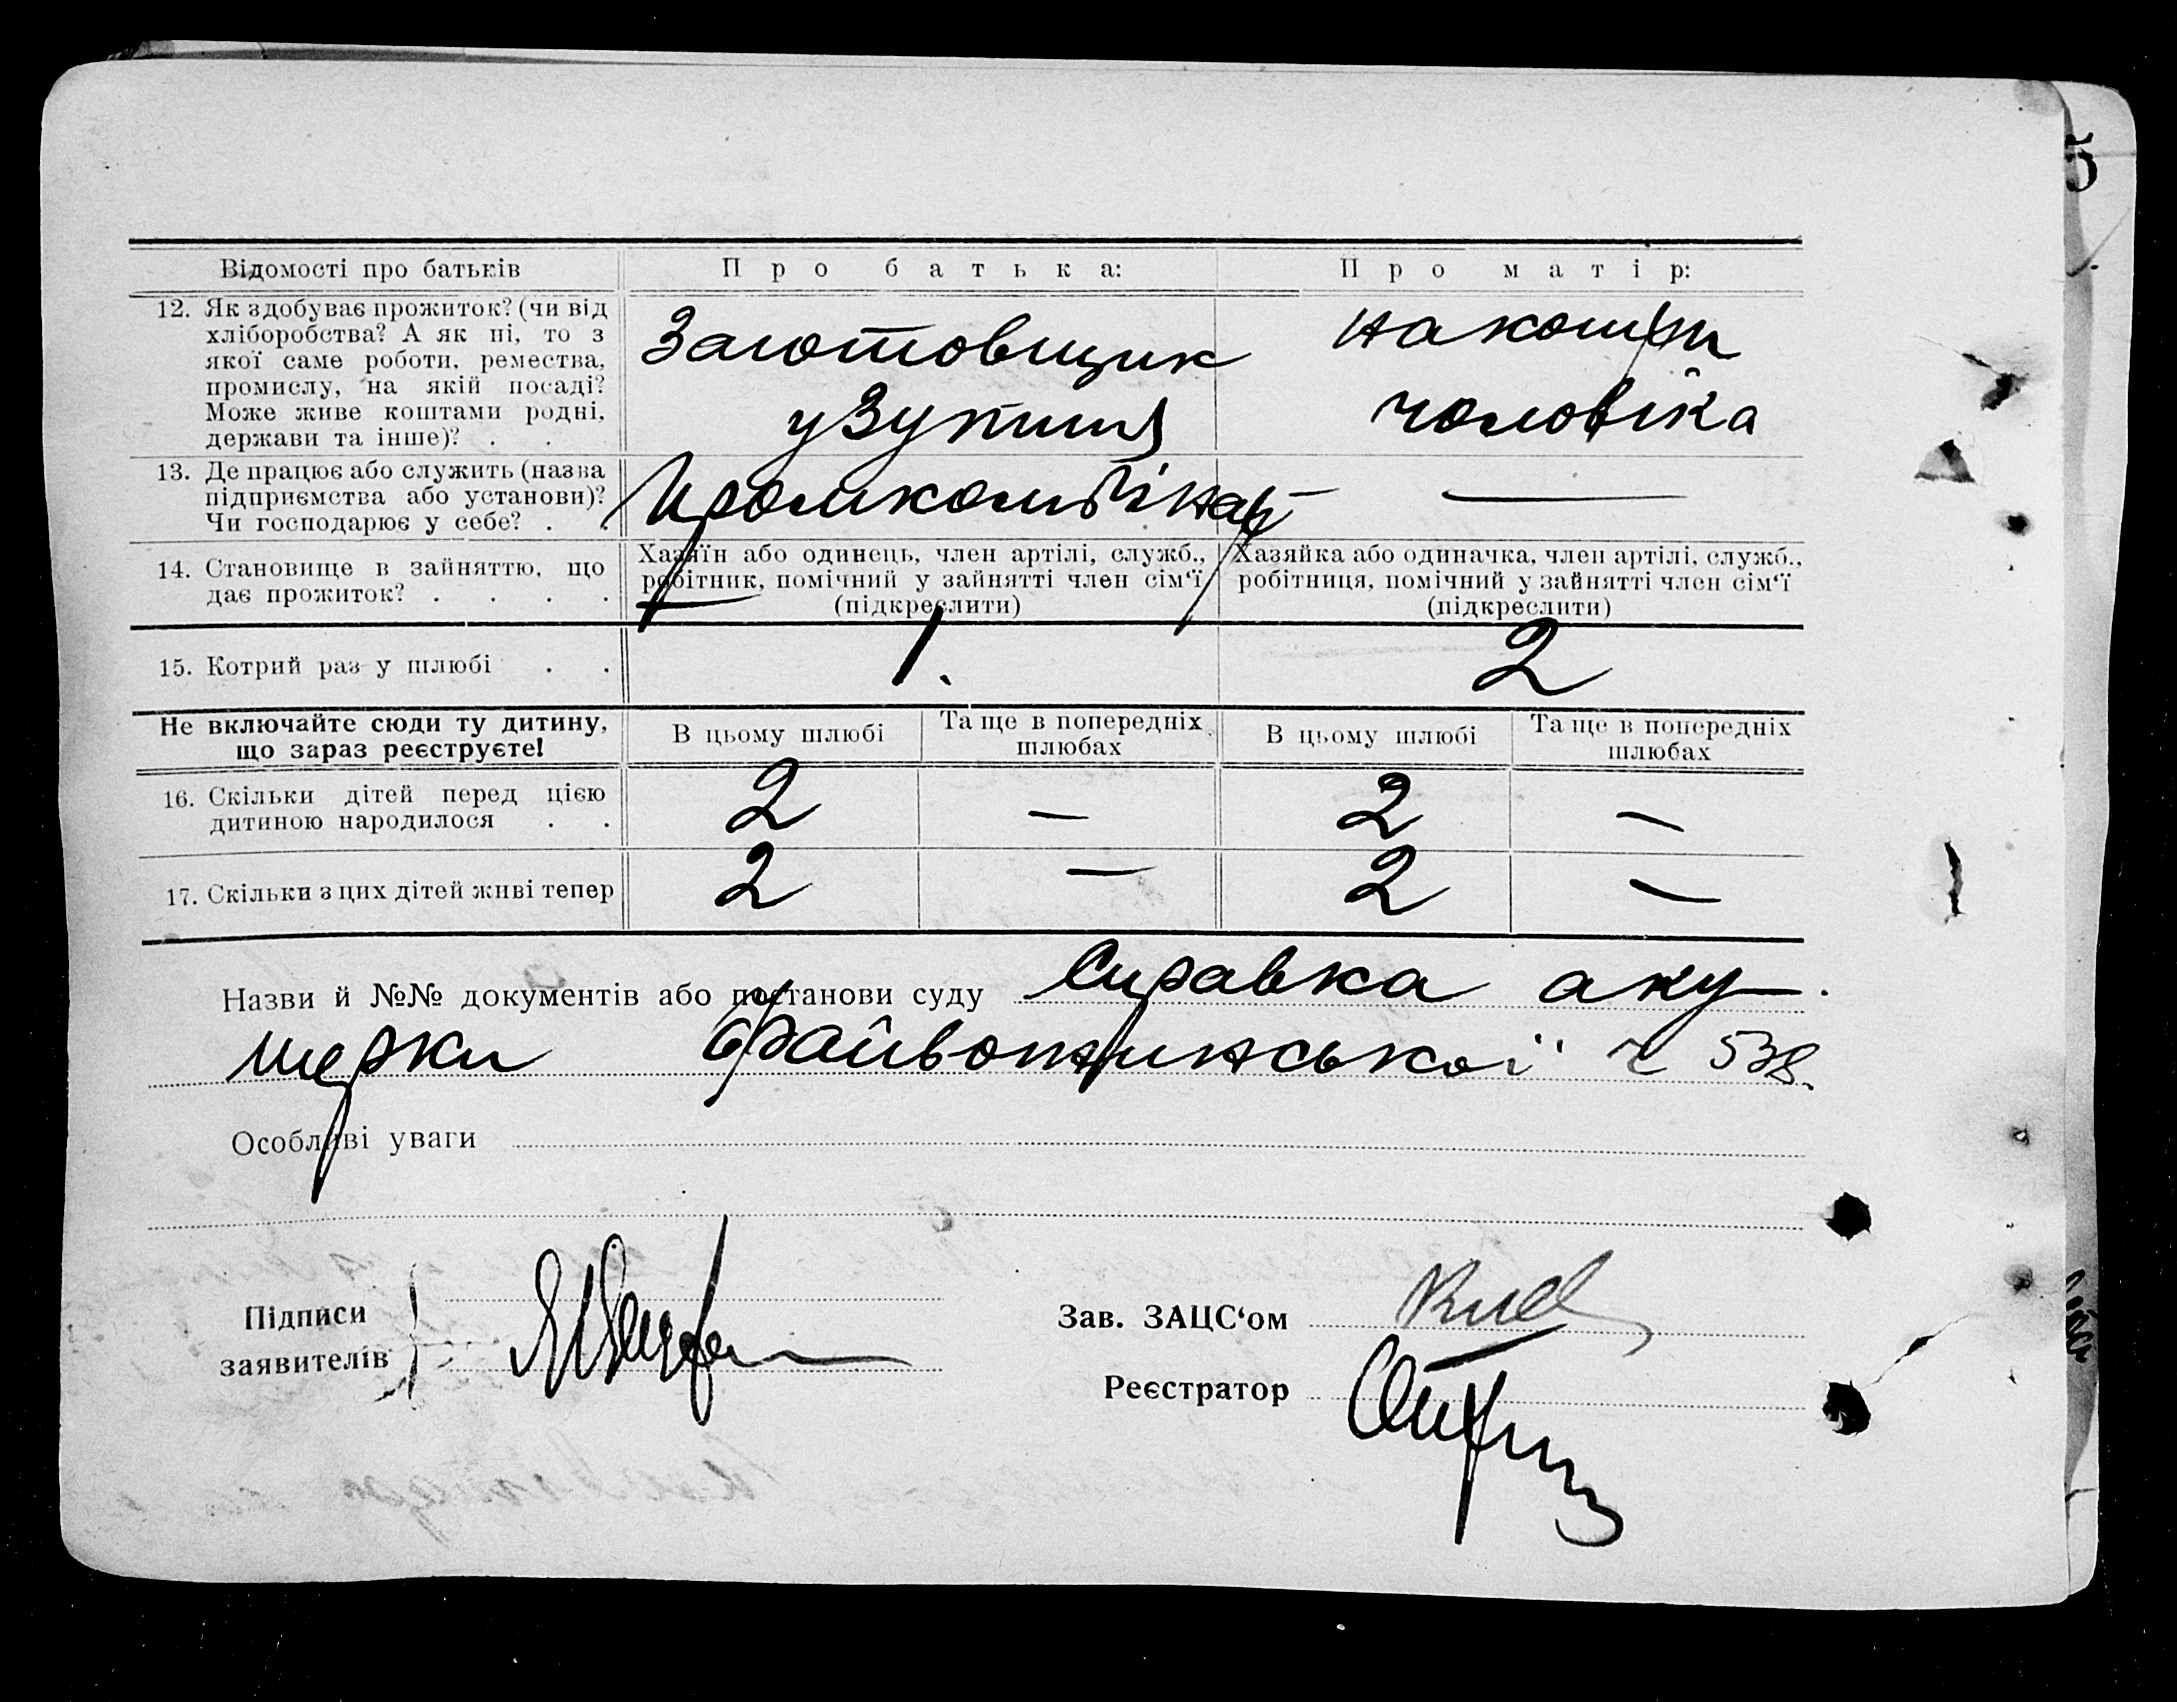 5
Відомості про батьків
Про батька:
Про матір:
12. Як здобуває прожиток? (чи від
хліборобства? А як ні, то з
якої саме роботи, ремества,
промислу, на якій посаді?
Може живе коштами родні,
держави та інше)? . .
Заготовщик
узуття
на кошти
чоловіка
13. Де працює або служить (назва
підприємства або установи)?
Чи господарює у себе? . .
Промкомбінат
—
14. Становище в зайняттю, що
дає прожиток? . . . .
Хазяїн або одинець, член артілі, служб.,
робітник, помічний у зайнятті член сім‘ї
(підкреслити)
Хазяйка або одиначка, член артілі, служб.,
робітниця, помічний у зайнятті член сім‘ї
(підкреслити)
15. Котрий раз у шлюбі . .
1.
2
Не включайте сюди ту дитину,
що зараз реєструєте!
В цьому шлюбі
Та ще в попередніх
шлюбах
В цьому шлюбі
Та ще в попередніх
шлюбах
16. Скільки дітей перед цією
дитиною народилося . .
2 — 2 —
17. Скільки з цих дітей живі тепер
2 — 2 —
Назви й №№ документів або постанови суду Справка аку-
шерки ч 538.
Особливі уваги
Підписи
заявителів
Зав. ЗАЦС‘ом
Реєстратор